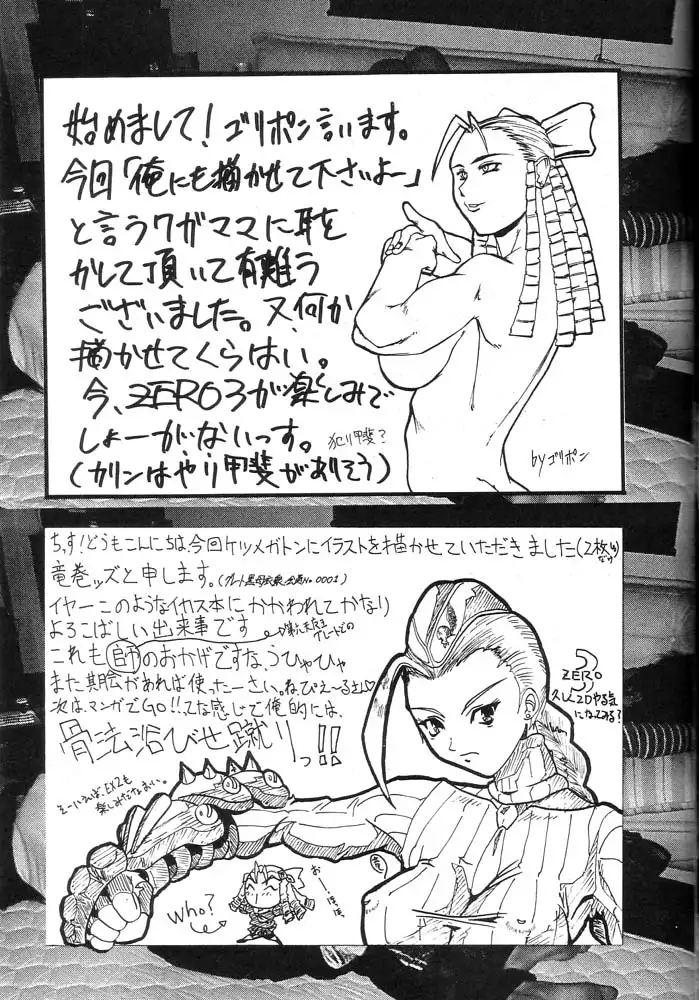 始めまして！ゴリポン言います。
今回「俺にも描かせて下さいよー」
と言うワガママに耳を
かして頂いて有難う
ございました。又、何か
描かせてくらはい。
今、ZERO3が楽しみで
しょーがないっす。
犯り甲斐？
(カリンはやり甲斐がありそう)
byゴリポン
ちぃす！どうもこんにちは、今回ケツメガトンにイラストを描かせていただきました(2枚
竜巻ッズと申します。
イヤーこのようなイカス本にかかわれてかなり
よろこばしい出来事です
これも師のおかげですなうひゃひゃ
また機会があれば使ったーさい。ねぴえ～るさん♡
次は、マンガでGO!!てな感じで俺的には、
骨法浴びせ蹴りっ!!
そーいえば、EX2も
楽しみだなおい。
ZERO3
久しぶ2Dやる気
になってみる？
Who?